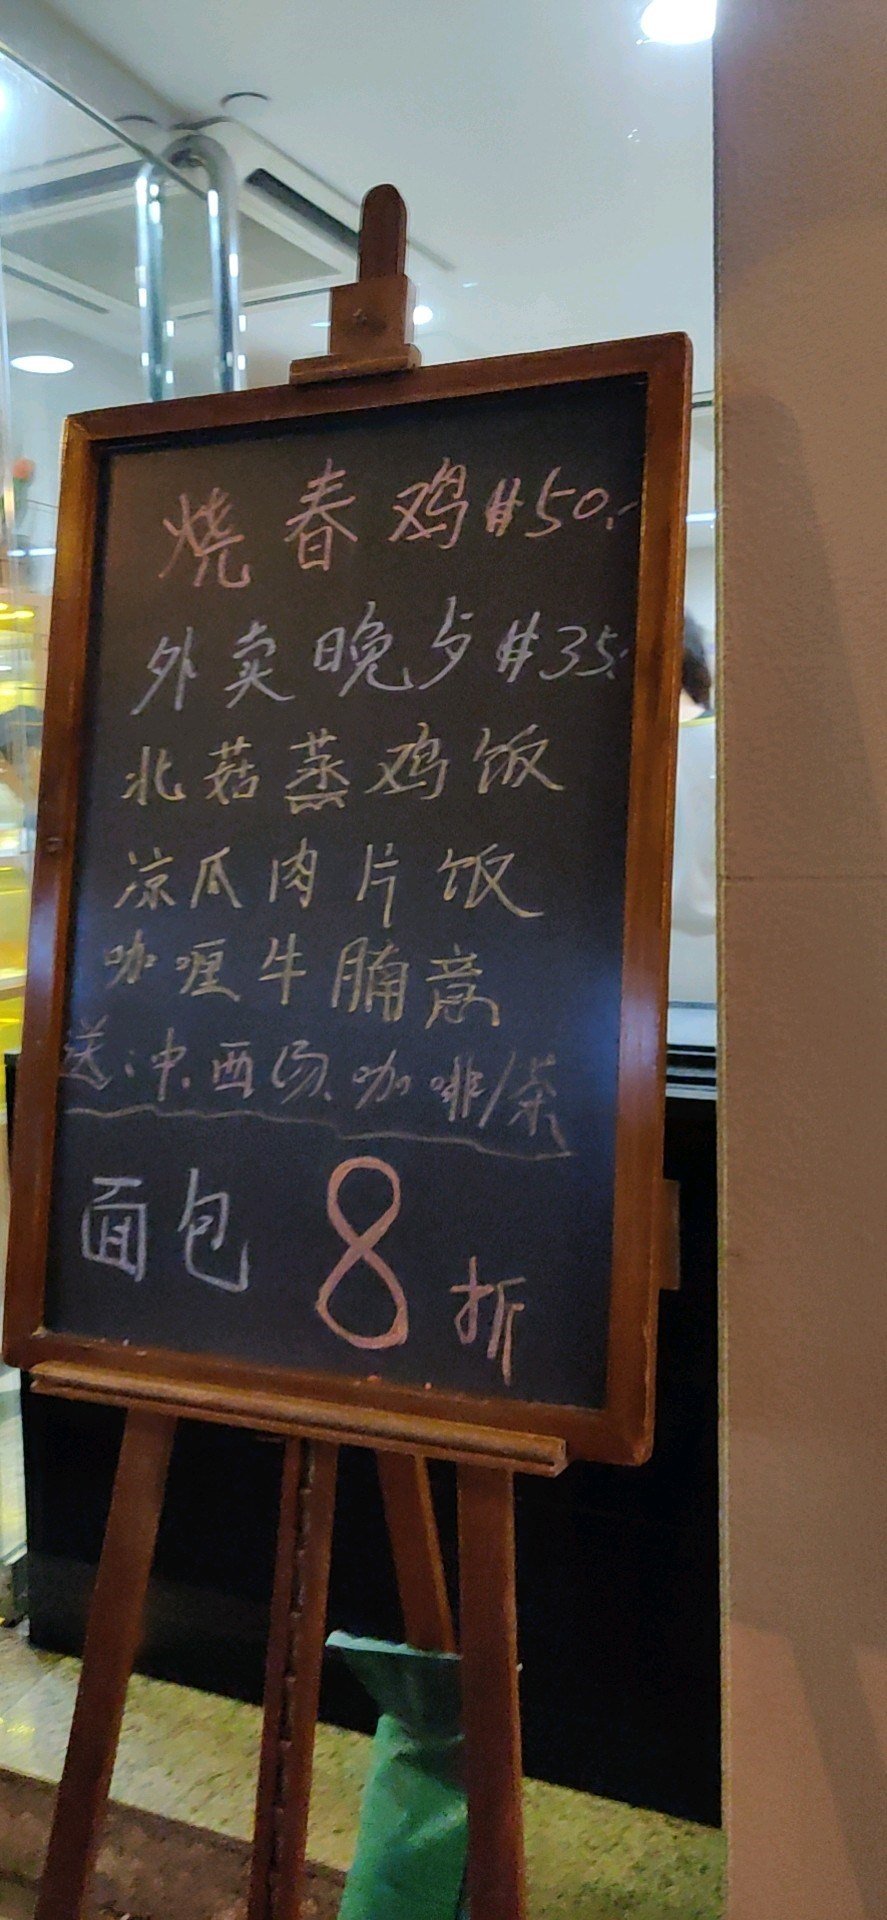 烧春鸡$50.-
外卖晚歺$35.
北菇蒸鸡饭
凉瓜肉片饭
咖喱牛腩意
送:中.西汤.咖啡/茶
面包 8折